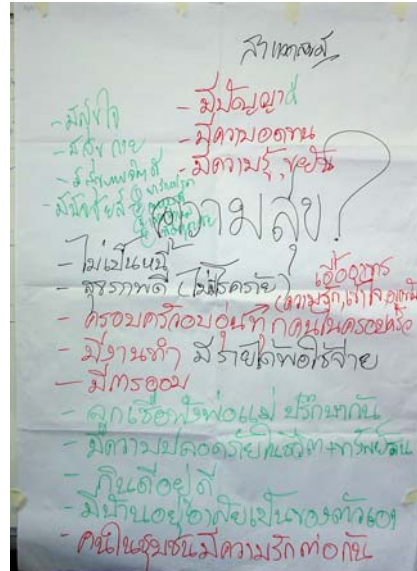 - มีปัญญาดี
- มีสุขใจ
- มีความอดทน
- มีสุข กาย
- มีความรู้, ขยัน
- มีสุขภาพจิตดี
- มีปัจจัยสี่
ความสุข?
- ไม่เป็นหนี้
- สุขภาพดี (ไม่มีโรคภัย)
เอื้ออาทร
(ความรัก, เข้าใจ,
- ครอบครัวอบอุ่น ทุกคนในครอบครัว
- มีงานทำ มีรายได้พอใช้จ่าย
- มีการออม
- ลูกเชื่อฟังพ่อแม่ ปรึกษากัน
- มีความปลอดภัยในชีวิต+ทรัพย์สิน
- กินดีอยู่ดี
- มีบ้านอยู่อาศัยเป็นของตัวเอง
- คนในชุมชนมีความรักต่อกัน